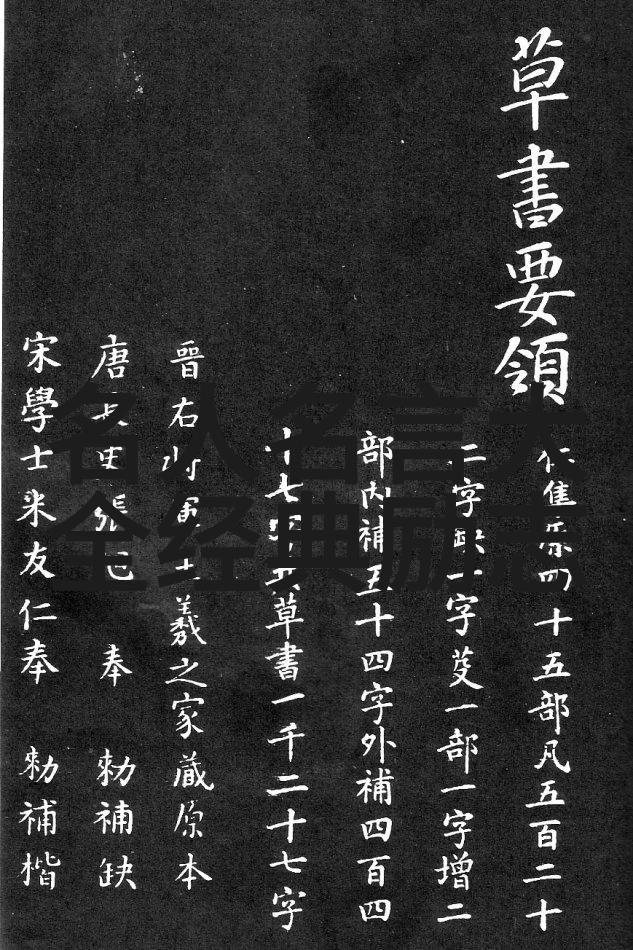 草書要領
隹 四十五部凡五百二十
二字缺一字芟一部一字增二
部內補五十四字外補四百四
十七字共草書一千二十七字
晉右將軍王羲之家藏原本
唐長史張旭 奉 勑補缺
宋學士米友仁奉 勑補楷
名人名言大
全经典励志